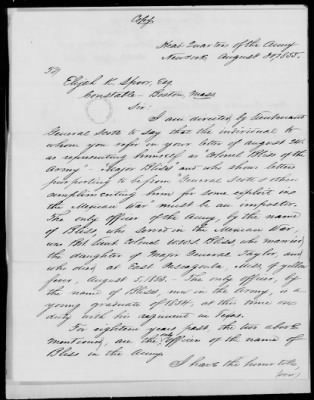 Copy.
Head Quarters of the Army
New York, August 30, 1855.
To
Elijah K. Spoor, Esq.
Constable - Boston, Mass.
Sir:
I am directed by Lieutenant
General Scott to say that the individual to
whom you refer in your letter of August 24th
as representing himself as Colonel Bliss of the
Army - "Major Bliss" and who shows letters
purporting to be from "General Scott & others
complimenting him for some exploit in
the Mexican War" must be an imposter.
The only officer of the Army, by the name
of Bliss, who served in the Mexican War,
was Bvt. Lieut. Colonel W.W.S. Bliss, who married
the daughter of Major General Taylor, and
who died at East Pascagoula, Miss. of yellow
fever, August 5, 1853. The only officer, by
the name of Bliss, now in the Army, is a
young graduate of 1854, at this time on
duty with his regiment in Texas.
For eighteen years past, the two above
mentioned, are the only officers of the name of
Bliss in the Army.
I have the honor to be,
(over)